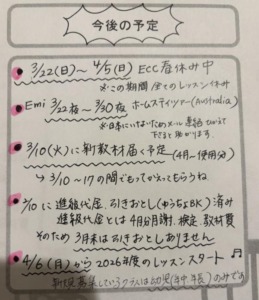 今後の予定
3/22(日)〜4/5(日) ECC春休み中
※この期間 全てのレッスン休み
Emi 3/22夜〜3/30夜 ホームステイツアー(Australia)
※日本にいないためメール連絡
下さると助かります。
3/10(火)に新教材届く予定
(4月〜使用分)
→3/10〜17の間でもってかえってもらうね
3/10に進級代金、引きおとし(ゆうちょBK)済み
進級代金とは4月分月謝、検定、教材費
そのため3月末は引きおとしありません
4/6(月)から2026年度のレッスンスタート
新規募集しているクラスは幼児(年中、年長)のみです